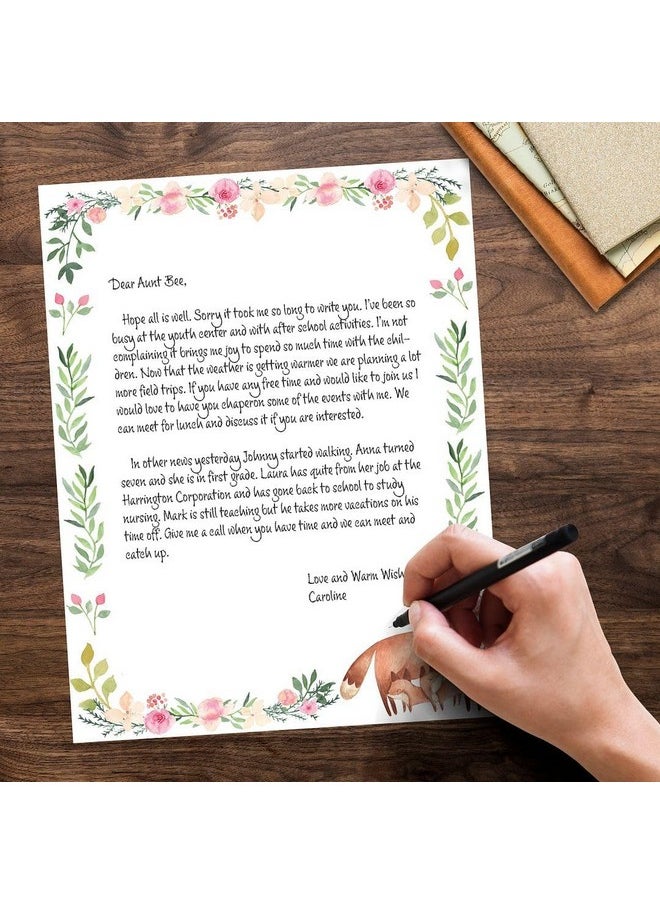 Dear Aunt Bee,
Hope all is well. Sorry it took me so long to write you. I've been so
busy at the youth center and with after school activities. I'm not
complaining it brings me joy to spend so much time with the chil-
dren. Now that the weather is getting warmer we are planning a lot
more field trips. If you have any free time and would like to join us I
would love to have you chaperon some of the events with me. We
can meet for lunch and discuss it if you are interested.
In other news yesterday Johnny started walking. Anna turned
seven and she is in first grade. Laura has quite from her job at the
Harrington Corporation and has gone back to school to study
nursing. Mark is still teaching but he takes more vacations on his
time off. Give me a call when you have time and we can meet and
catch up.
Love and Warm Wish
Caroline